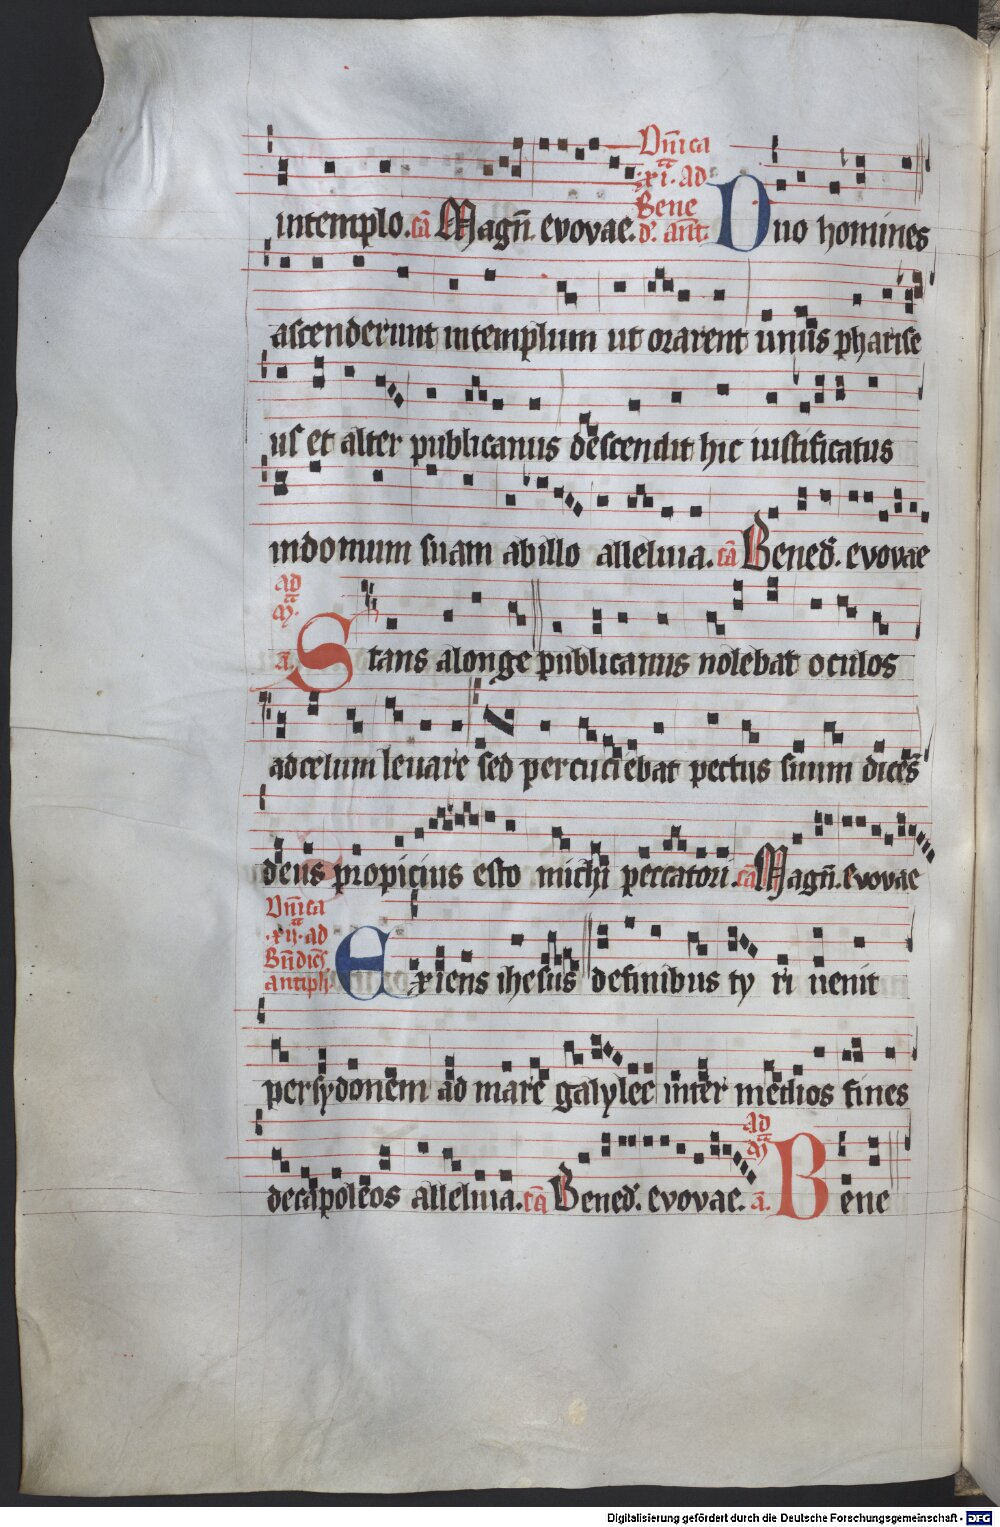 intemplo. ca᷈ Magn̄. evovae. Dn̄ica .xi.ª ad Bene d'. ant. Duo homines
ascenderunt intemplum ut orarent unus pharise
us et alter publicanus descendit hic iustificatus
indomum suam abillo alleluia. ca᷈ Bened'. evovae
ad M.ª
a᷈. Stans alonge publicanus nolebat oculos
adcelum levare sed percuciebat pectus suum dicēs
deus propicius esto michi peccatori. ca᷈ Magn̄. evovae
Dn̄ica .xij.ª ad Bn̄dict' antiph' Exiens ihesus definibus ty ri uenit
persydonem ad mare galylee inter medios fines
decapoleos alleluia. ca᷈ Bened'. evovae. ad M.ª a᷈. Bene
Digitalisierung gefördert durch die Deutsche Forschungsgemeinschaft - DFG